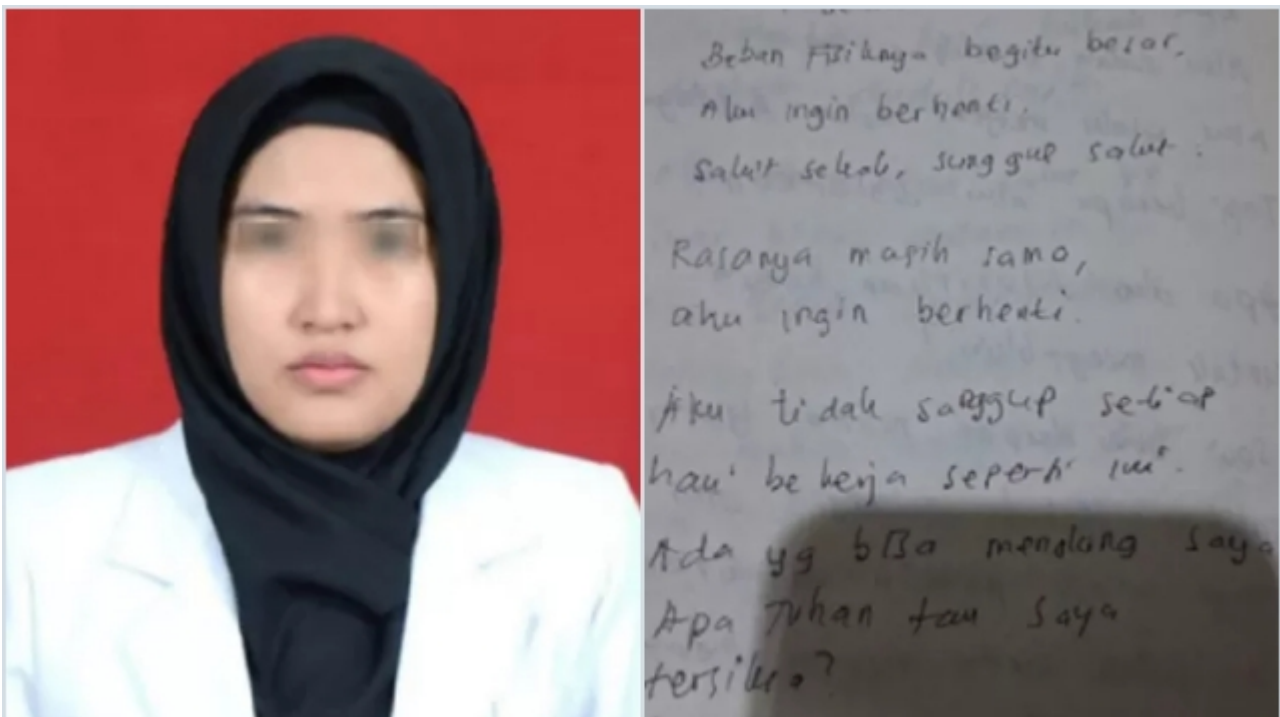 Beban Fisiknya begitu besar.
Aku ingin berhenti.
Sakit sekali, sungguh sakit.
Rasanya masih sama,
aku ingin berhenti.
Aku tidak sanggup setiap
hari bekerja seperti ini.
Ada yg bisa menolong saya
Apa Tuhan tau saya
tersiksa?